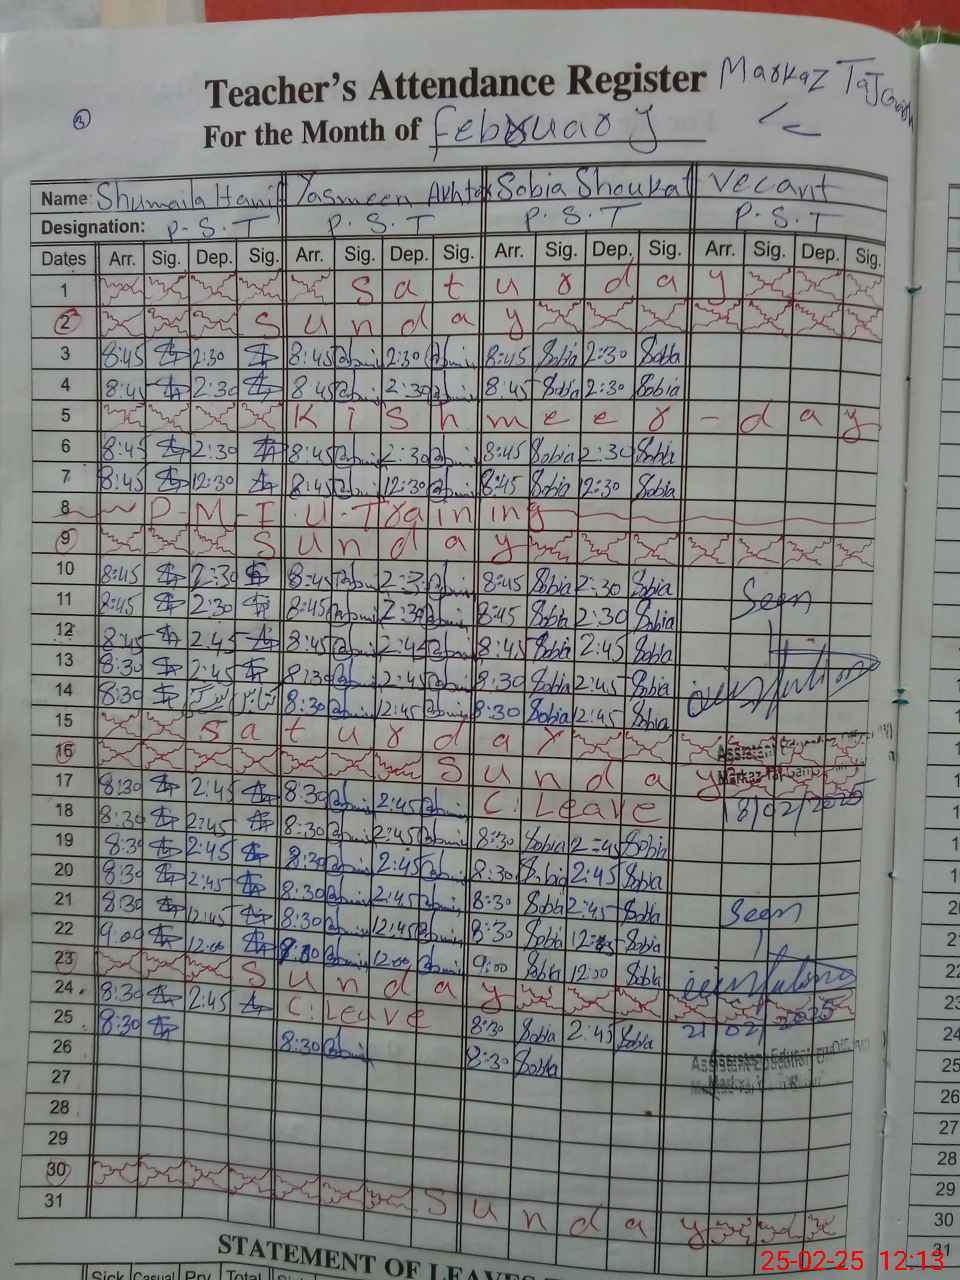 Teacher's Attendance Register Markaz Taj Garh
3
For the Month of February
Name: Shumaila Hanif Yasmeen Akhtar Sobia Shoukat Vecant
Designation: P.S.T P.S.T P.S.T P.S.T
Dates Arr. Sig. Dep. Sig. Arr. Sig. Dep. Sig. Arr. Sig. Dep. Sig. Arr. Sig. Dep. Sig.
1 Saturday
2 Sunday
3 8:45 2:30 8:45 2:30 8:45 Sobia 2:30 Sobia
4 8:45 2:30 8:45 2:30 8:45 Sobia 2:30 Sobia
5 Kishmeer-day
6 8:45 2:30 8:45 2:30 8:45 Sobia 2:30 Sobia
7 8:45 12:30 8:45 12:30 8:45 Sobia 12:30 Sobia
8 P-M-I U-Training
9 Sunday
10 8:45 2:30 8:45 2:30 8:45 Sobia 2:30 Sobia
11 8:45 2:30 8:45 2:30 8:45 Sobia 2:30 Sobia Seen
12 8:45 2:45 8:45 2:45 8:45 Sobia 2:45 Sobia
13 8:30 2:45 8:30 2:45 8:30 Sobia 2:45 Sobia
14 8:30 8:30 12:45 8:30 Sobia 12:45 Sobia
15 Saturday Assistant
16 Sunday Markaz
17 8:30 2:45 8:30 2:45 C:Leave 18/02/2025
18 8:30 2:45 8:30 2:45 8:30 Sobia 2:45 Sobia
19 8:30 2:45 8:30 2:45 8:30 Sobia 2:45 Sobia
20 8:30 2:45 8:30 2:45 8:30 Sobia 2:45 Sobia
21 8:30 12:45 8:30 12:45 8:30 Sobia 12:45 Sobia Seen
22 9:00 12:00 12:00 9:00 Sobia 12:00 Sobia
23 Sunday
24 8:30 2:45 C:Leave 8:30 Sobia 2:45 Sobia 21/02/2025
25 8:30 8:30 8:30 Sobia Assistant Education
26
27
28
29
30 Sunday
31
STATEMENT OF LEAVES
Sick Casual Prv. Total
20
21
22
23
24
25
26
27
28
29
30
31
25-02-25 12:13